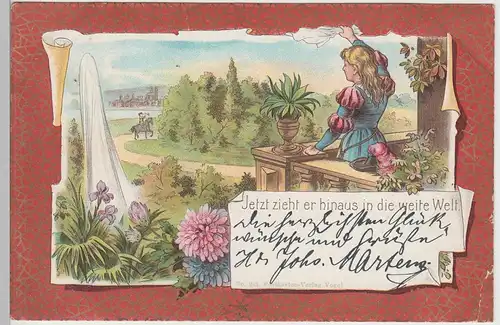 Jetzt zieht er hinaus in die weite Welt.
Die herzlichsten Glück-
wünsche und Grüße
Johs. Martens